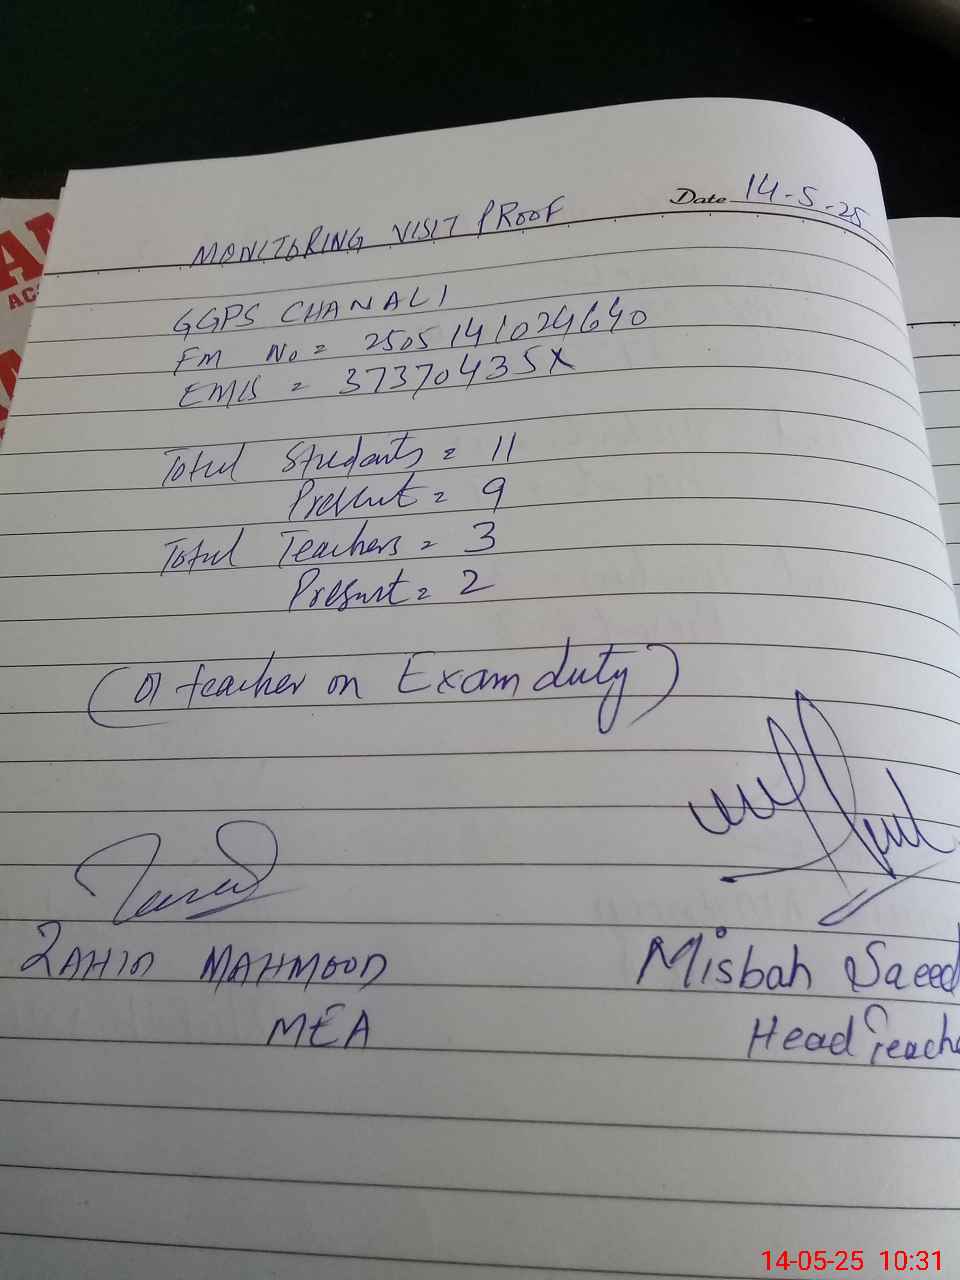 Date 14-5-25
MONITORING VISIT PROOF
GGPS CHANALI
FM No = 2505141024640
EMIS = 37370435X
Total Students = 11
Present = 9
Total Teachers = 3
Present = 2
(01 teacher on Exam duty)
ZAHID MAHMOOD
MEA
Misbah Saeed
Head Teache
14-05-25 10:31